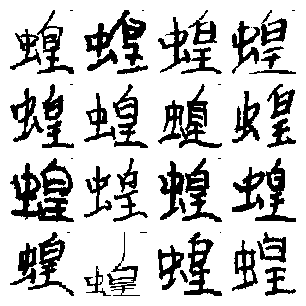 蝗蝗蝗蝗
蝗蝗蝗蝗
蝗蝗蝗蝗
蝗蝗蝗蝗